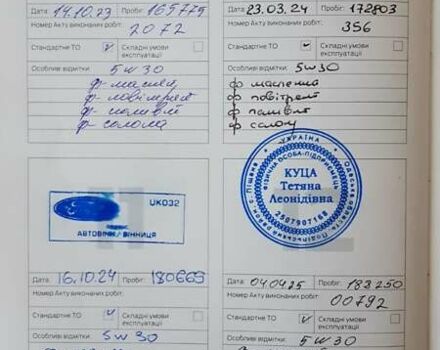 Дата: 14.10.23 Пробіг: 165775
Номер Акту виконаних робіт:
2072
Стандартне ТО Складні умови експлуатації
Особливі відмітки: 5w30
ф-масла
ф-повітряний
ф-паливн
ф-салона
UK032
АВТОВІНН / ВІННИЦЯ
Дата: 23.03.24 Пробіг: 172803
Номер Акту виконаних робіт:
356
Стандартне ТО Складні умови експлуатації
Особливі відмітки: 5w30
ф масленний
ф повітрян
ф паливн
ф салону
УКРАЇНА
ФІЗИЧНА ОСОБА-ПІДПРИЄМЕЦЬ
КУЦА
Тетяна
Леонідівна
2507907168
Дата: 16.10.24 Пробіг: 180669
Номер Акту виконаних робіт:
Стандартне ТО Складні умови експлуатації
Особливі відмітки: 5w30
Дата: 040425 Пробіг: 188250
Номер Акту виконаних робіт:
00792
Стандартне ТО Складні умови експлуатації
Особливі відмітки: 5w30